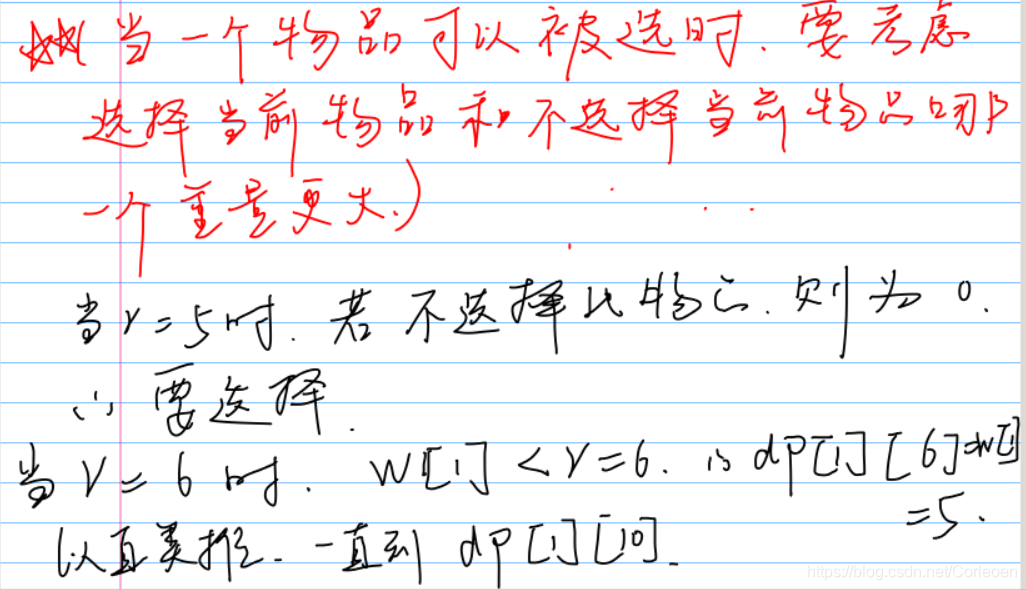 ☆☆(当一个物品可以被选时.要考虑
选择当前物品和不选择当前物品哪
一个重量更大.)
当V=5时.若不选择此物品.则为0.
∴要选择.
当V=6时. W[1]<V=6. ∴dp[1][6]=W[1]
=5.
以直类推.一直到dp[1][10].
https://blog.csdn.net/Corleoen